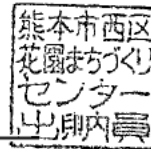 熊本市西区
花園まちづくり
センター
出納員